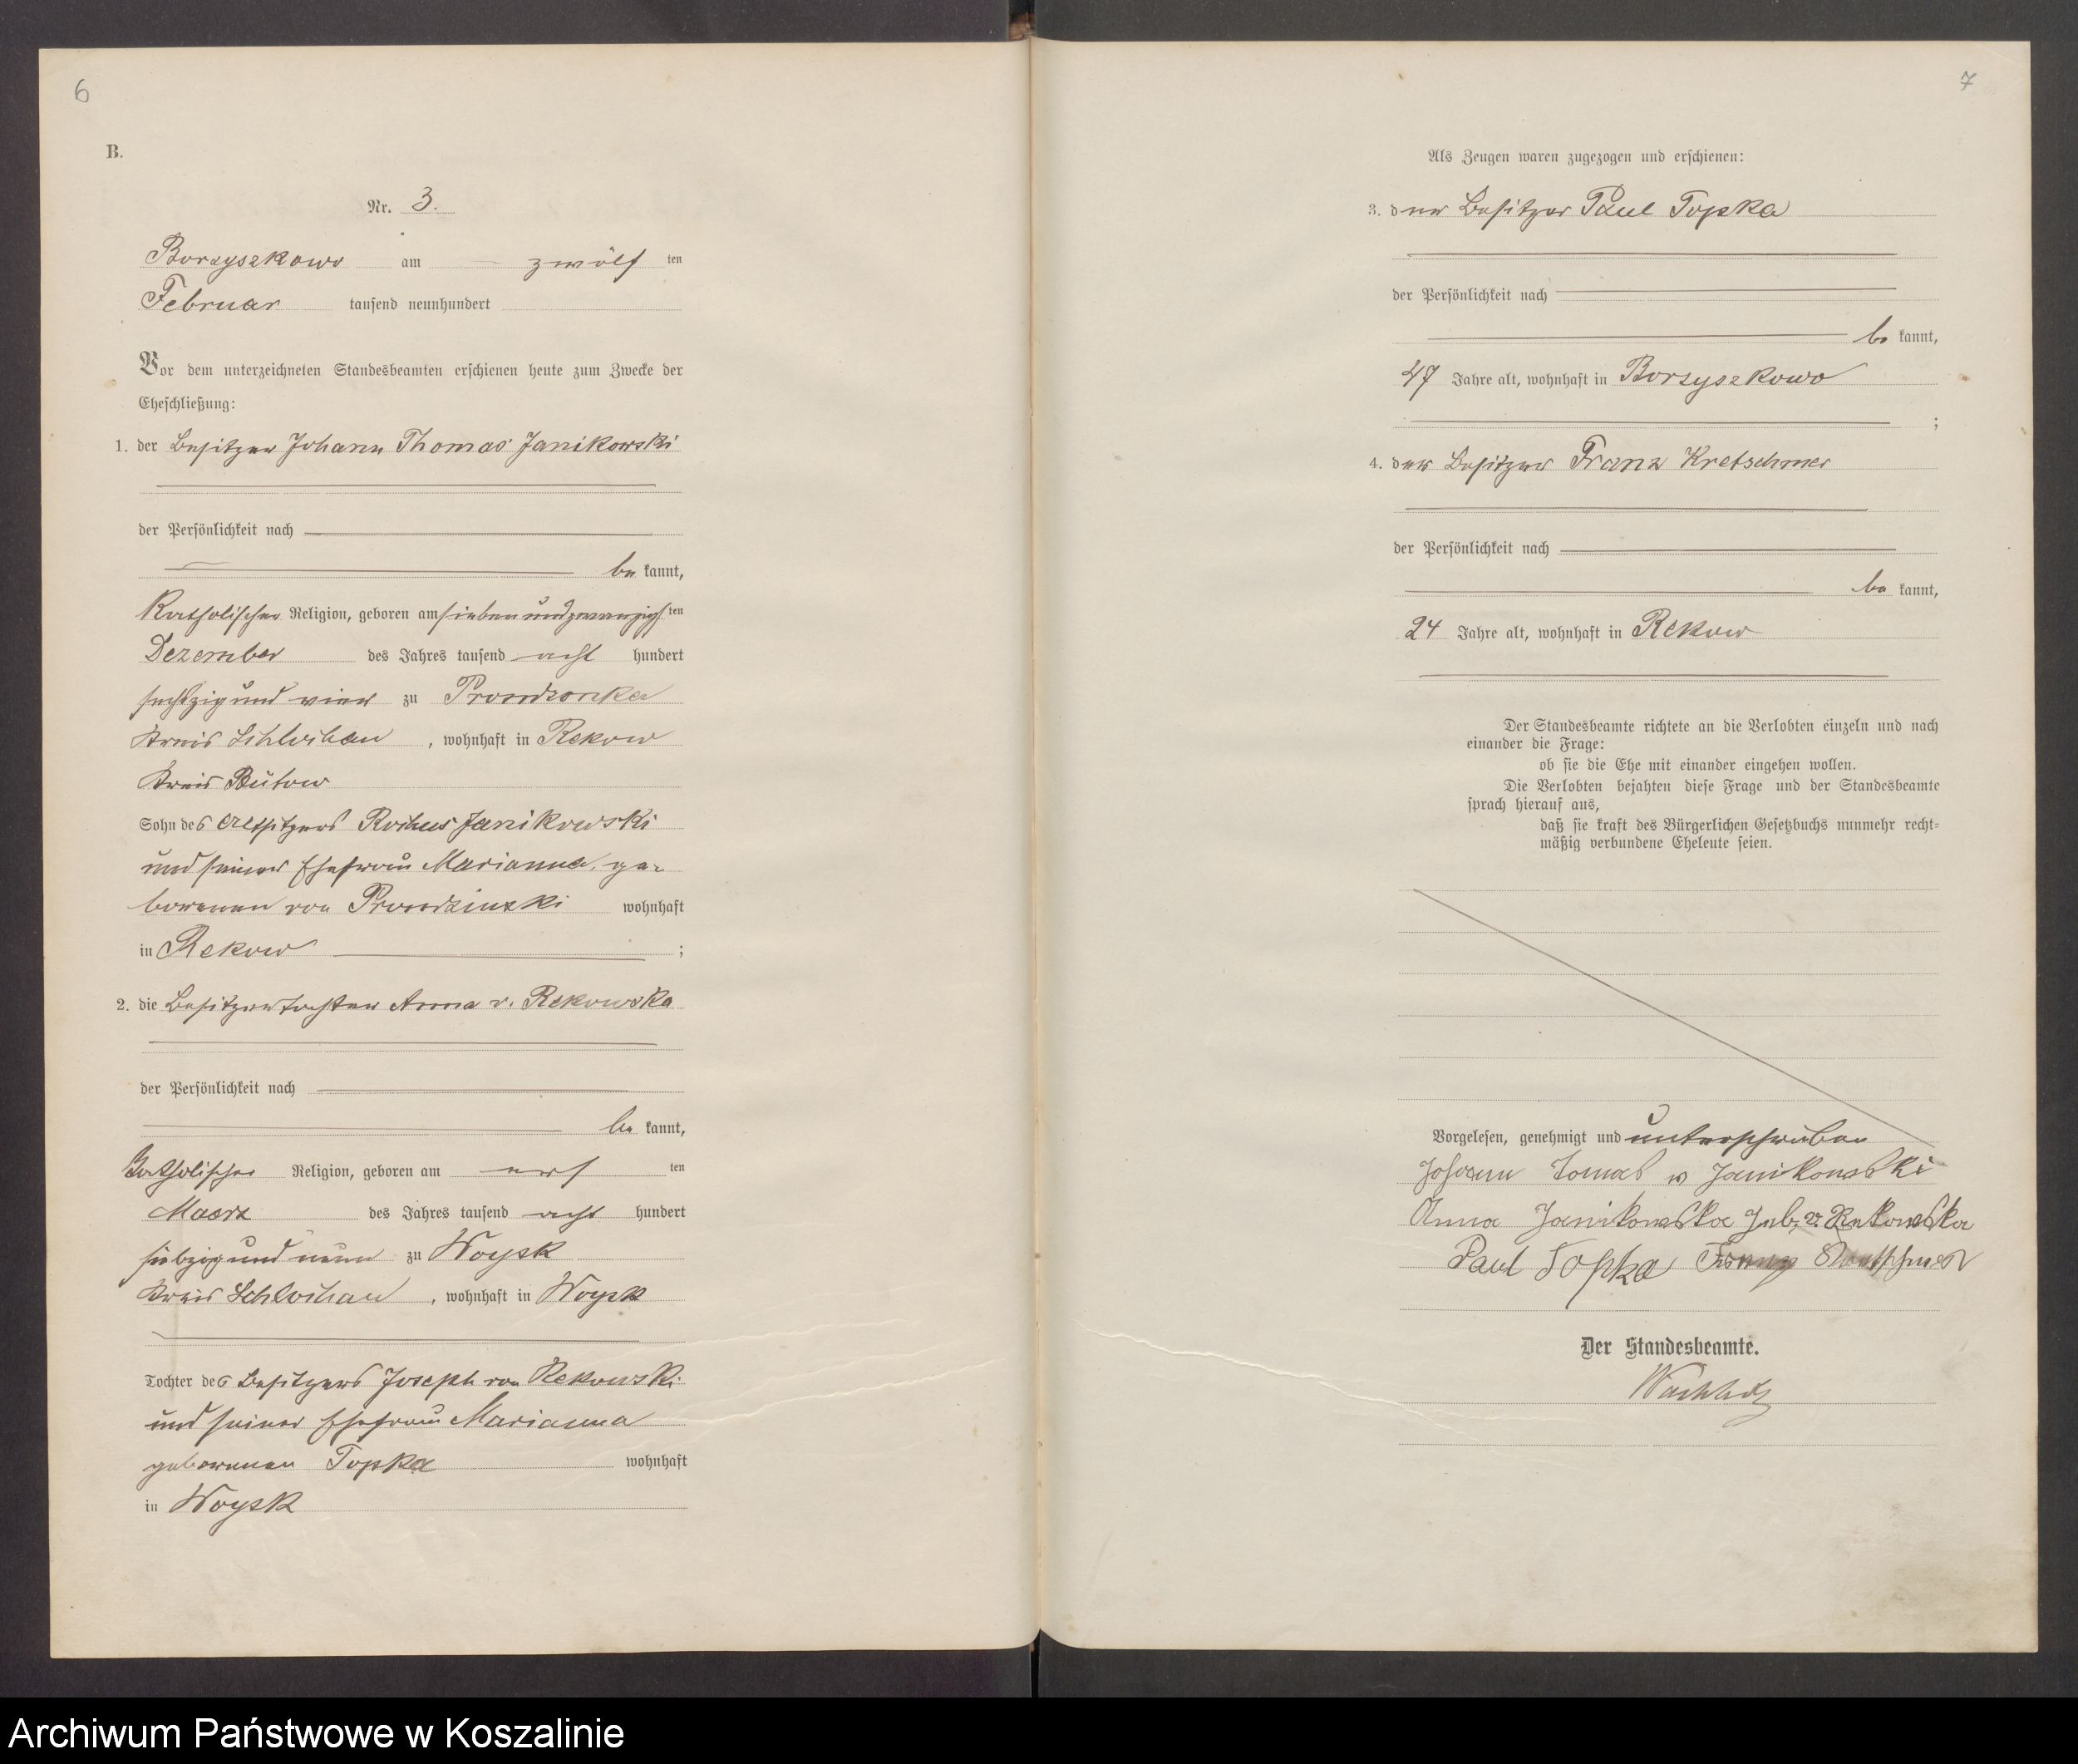 6
B.
Nr. 3.
Borzyszkowo am zwölf ten
Februar tausend neunhundert
Vor dem unterzeichneten Standesbeamten erschienen heute zum Zwecke der
Eheschließung:
1. der Besitzer Johann Thomas Janikowski
der Persönlichkeit nach
be kannt,
Katholischer Religion, geboren am siebenundzwanzigsten
Dezember des Jahres tausend acht hundert
sechszig und vier zu Prondzonka
Kreis Schlochau, wohnhaft in Rekow
Kreis Bütow
Sohn des Altsitzers Rochus Janikowski
und seiner Ehefrau Marianna, ge-
borenen von Prondzinski wohnhaft
in Rekow ;
2. die Besitzertochter Anna v. Rekowska
der Persönlichkeit nach
be kannt,
Katholischer Religion, geboren am ers ten
Maerz des Jahres tausend acht hundert
siebzig und neun zu Woysk
Kreis Schlochau, wohnhaft in Woysk
Tochter des Besitzers Joseph von Rekowski
und seiner Ehefrau Marianna
geborenen Topka wohnhaft
in Woysk
7
Als Zeugen waren zugezogen und erschienen:
3. der Besitzer Paul Topka
der Persönlichkeit nach
be kannt,
47 Jahre alt, wohnhaft in Borzyszkowo
;
4. der Besitzer Franz Kretschmer
der Persönlichkeit nach
be kannt,
24 Jahre alt, wohnhaft in Rekow
Der Standesbeamte richtete an die Verlobten einzeln und nach
einander die Frage:
ob sie die Ehe mit einander eingehen wollen.
Die Verlobten bejahten diese Frage und der Standesbeamte
sprach hierauf aus,
daß sie kraft des Bürgerlichen Gesetzbuchs nunmehr recht-
mäßig verbundene Eheleute seien.
Vorgelesen, genehmigt und unterschrieben
Johann Tomas Janikowski
Anna Janikowska geb. v. Rekowska
Paul Topka Franz Kretschmer
Der Standesbeamte.
Archiwum Państwowe w Koszalinie